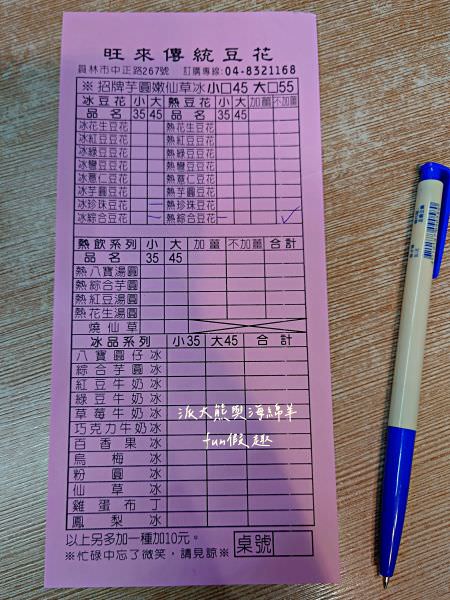 旺來傳統豆花
員林市中正路267號 訂購專線:04-8321168
※招牌芋圓嫩仙草冰小口45 大口55
冰豆花 小 大 熱豆花 小 大 加薑 不加薑
品名 35 45 品名 35 45
冰花生豆花 熱花生豆花
冰紅豆豆花 熱紅豆豆花
冰綠豆豆花 熱綠豆豆花
冰巒豆豆花 熱巒豆豆花
冰薏仁豆花 熱薏仁豆花
冰芋圓豆花 熱芋圓豆花
冰珍珠豆花 一 熱珍珠豆花
冰綜合豆花 一 熱綜合豆花 一 ✓
熱飲系列 小 大 加薑 不加薑 合計
品名 35 45
熱八寶湯圓
熱綜合芋圓
熱紅豆湯圓
熱花生湯圓
燒仙草
冰品系列 小35 大45 合計
八寶圓仔冰
綜合芋圓冰
紅豆牛奶冰
綠豆牛奶冰
草莓牛奶冰
巧克力牛奶冰
百香果冰
烏梅冰
粉圓冰
仙草冰
雞蛋布丁冰
鳳梨冰
以上另多加一種加10元。
※忙碌中忘了微笑,請見諒※
桌號
派大熊與海綿羊
fun假趣